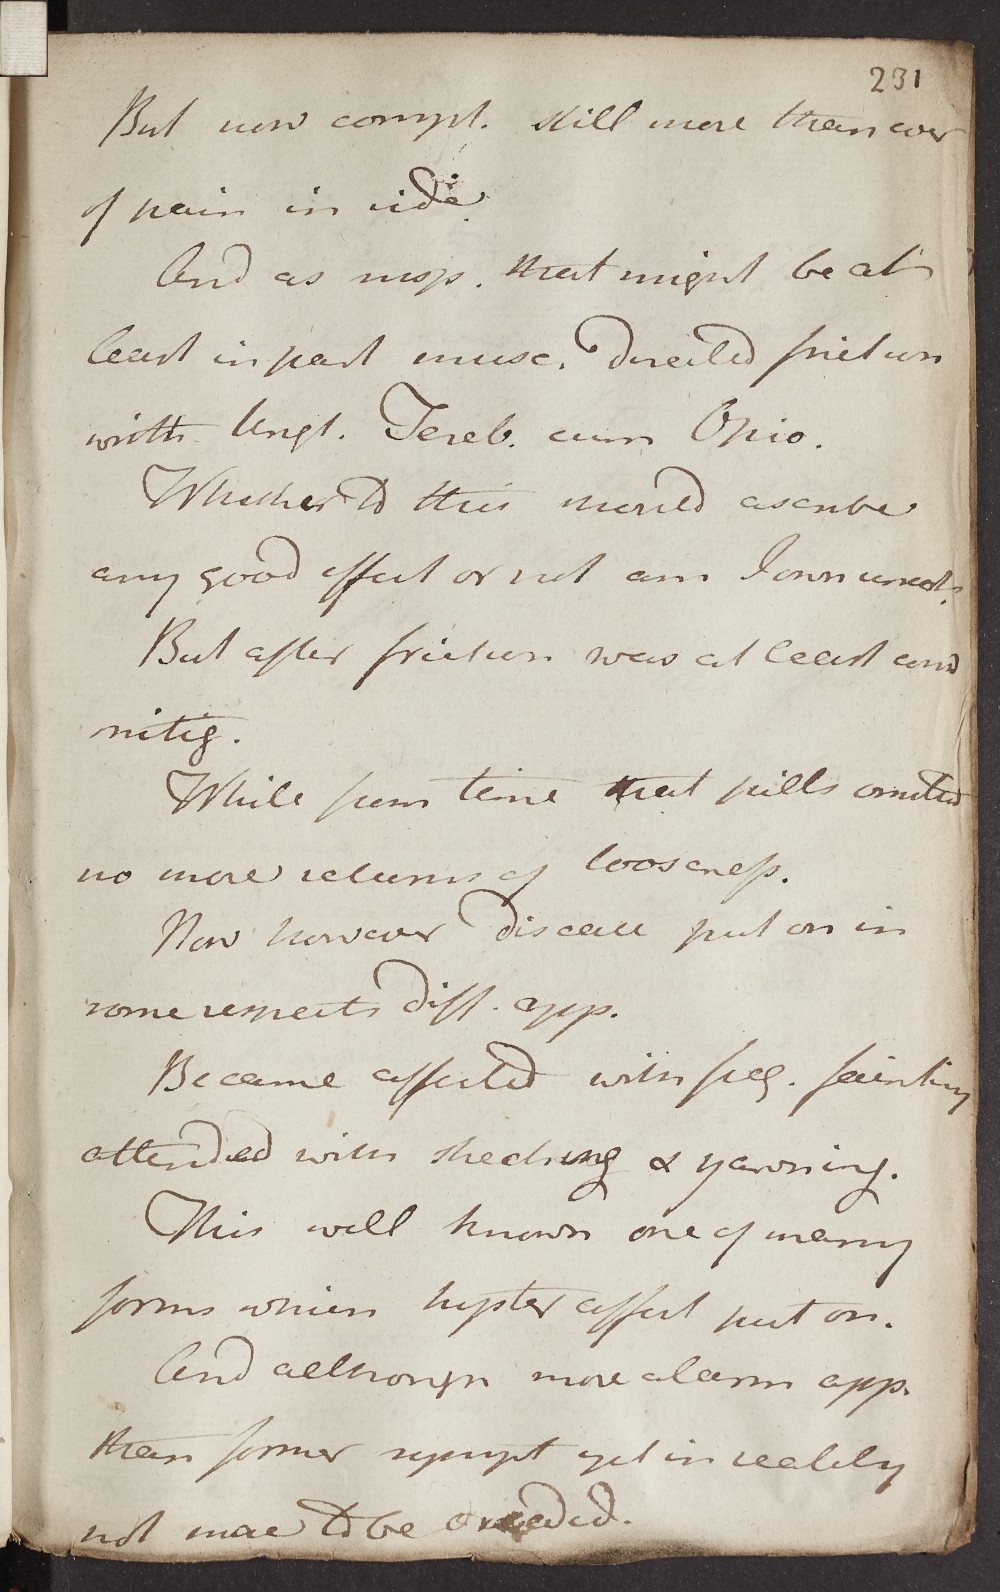 231
But now compt. still more than ever
of pain in side.
And as susp. that might be at
least in part musc. directed friction
with Ungt. Tereb. cum Opio.
Whether to this should ascribe
any good effect or not am I own uncert.
But after friction was at least cond
mitig.
While from time that pills omitted
no more returns of looseness.
Now however disease put on in
some respects diff. app.
Became affected with freq. fainting
attended with &amp; yawning.
This well known one of many
forms which hyster affect put on.
And although more alarm app.
than former sympt yet in reality
not more to be dreaded.